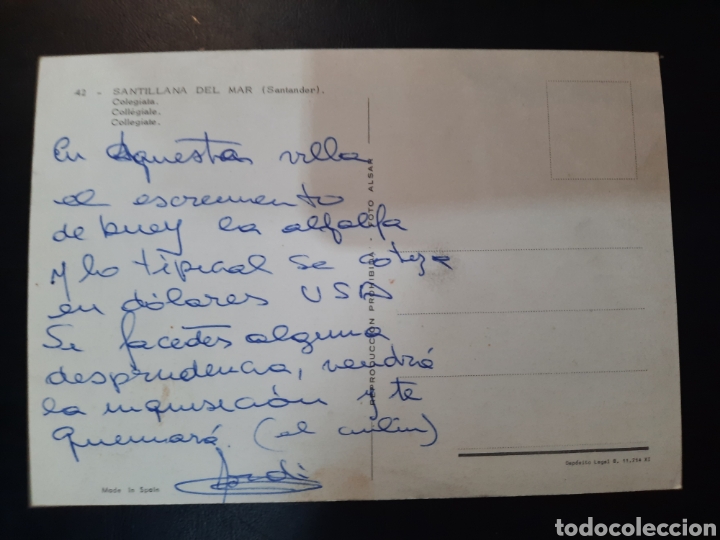 42 - SANTILLANA DEL MAR (Santander).
Colegiata.
Collégiale.
Collegiate.
En aquestas villa
el escremento
de buey la alfalfa
y lo tipical se cotiza
en dólares USA
Se facedes alguna
desprudencia, vendrá
la inquisición y te
quemará. (el culín)
Jordi
REPRODUCCION PROHIBIDA - FOTO ALSAR
Made in Spain
Depósito Legal B. 11,254 62
todocoleccion.net